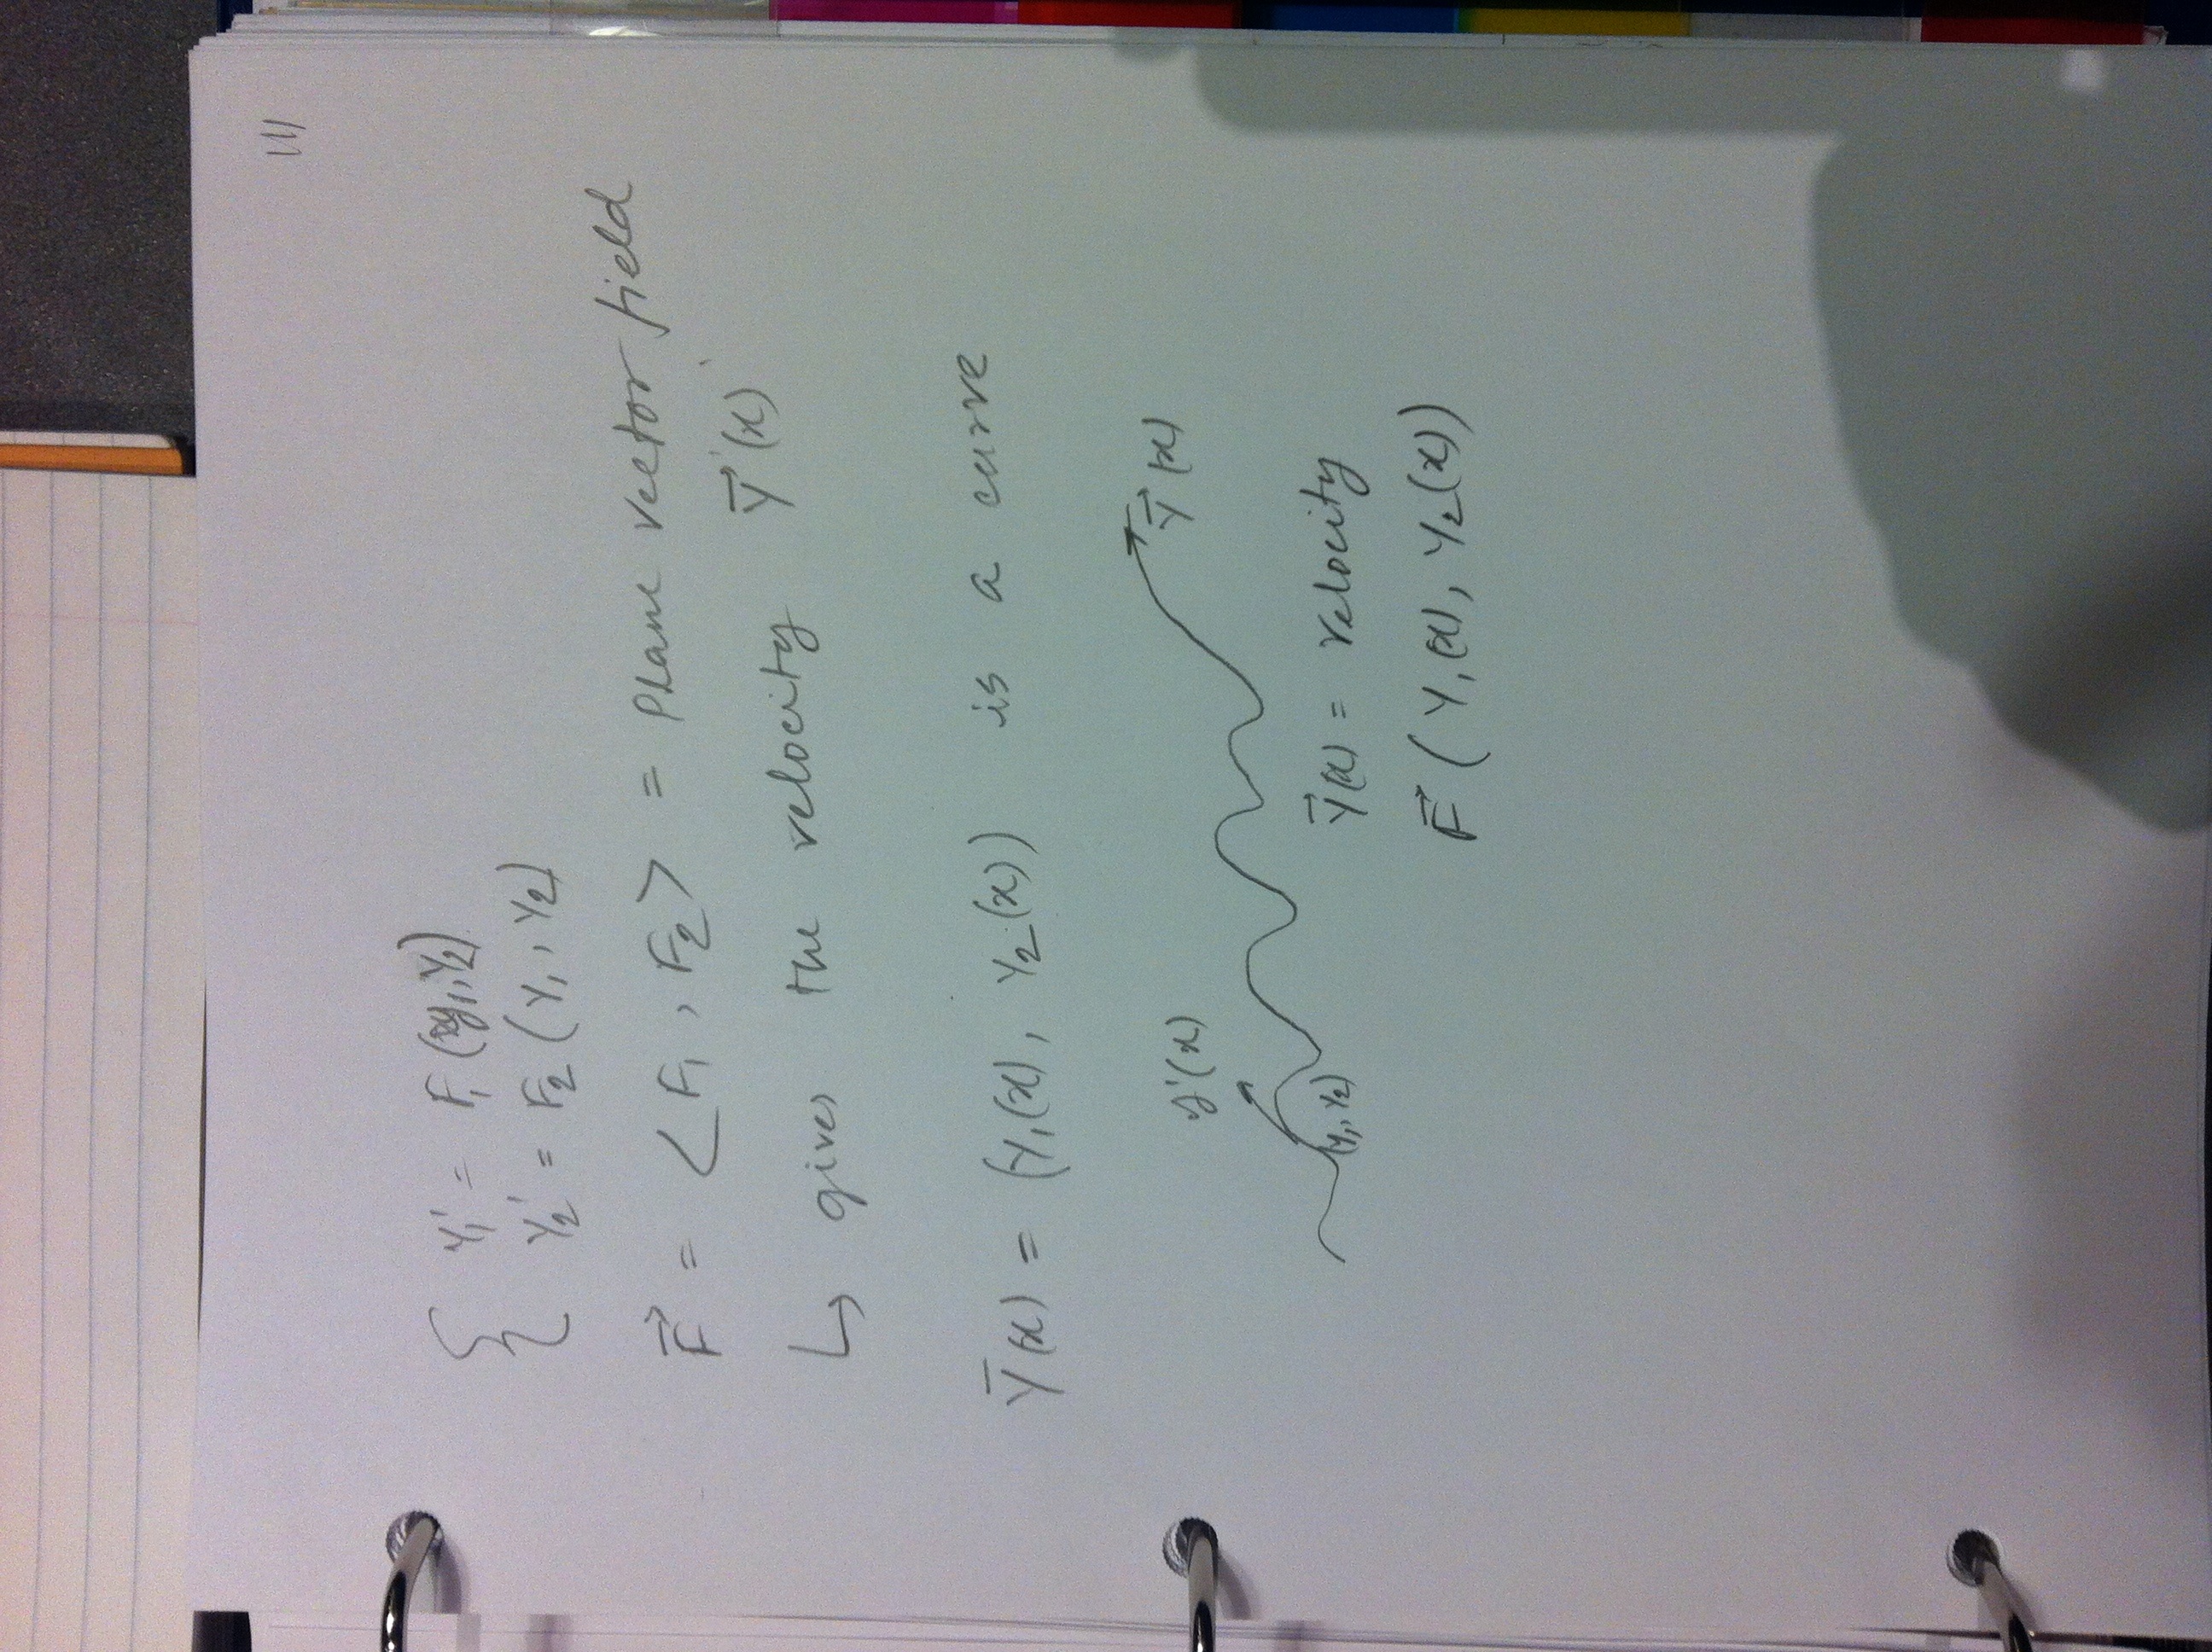 111
{ Y₁' = F₁(y₁,Y₂)
Y₂' = F₂(Y₁, Y₂)
F⃗ = <F₁, F₂> = Plane vector field
↳ gives the velocity Y⃗'(x)
Y⃗(x) = (Y₁(x), Y₂(x)) is a curve
y'(x)
Y⃗(x)
(Y₁, Y₂)
Y⃗(x) = velocity
F⃗(Y₁(x), Y₂(x))